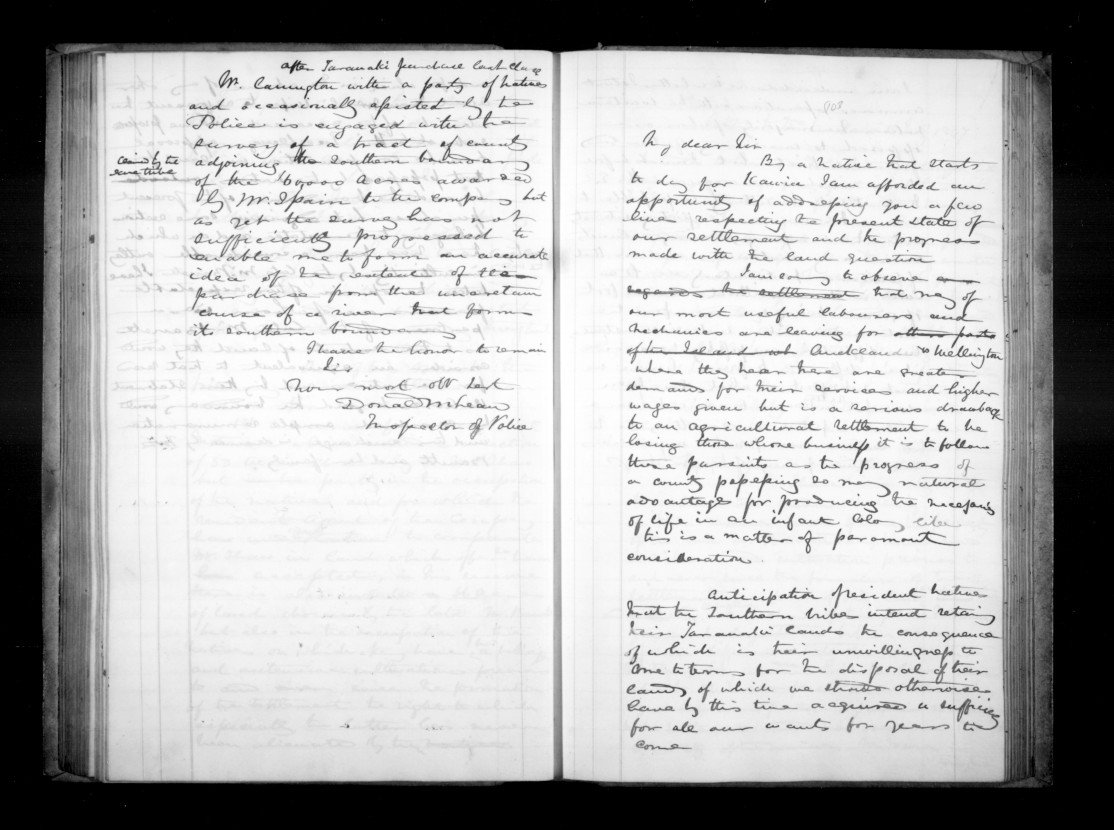 after Taranaki purchase last clause
Mr. Carrington with a party of natives
and occasionally assisted by the
Police is engaged with the
survey of a tract of country
claimed by the
same tribe
adjoining the Southern boundary
of the 60,000 acres awarded
by Mr. Spain to the company but
as yet the survey has not
sufficiently progressed to
enable me to form an accurate
idea of the extent of the
purchase from the uncertain
course of a river that forms
its southern boundary
I have the honor to remain
Sir
Your most obt Sert
Donald McLean
Inspector of Police
My dear Sir
By a native that starts
to day for Kawia I am afforded an
opportunity of addressing you a few
lines respecting the present state of
our settlement and the progress
made with the land question
I am sorry to observe as
regards the settlement that many of
our most useful labourers and
mechanics are leaving for other parts
of the Island not Auckland & Wellington
where they hear there are greater
demands for their services and higher
wages given but is a serious drawback
to an agricultural settlement to be
losing those whose business it is to follow
these pursuits as the progress of
a country possessing so many natural
advantages for producing the necessaries
of life in an infant Colony like
this is a matter of paramount
consideration.
Anticipation of resident natives
that the Southern tribes intend retaining
their Taranaki lands the consequence
of which is their unwillingness to
come to terms for the disposal of their
lands of which we should otherwise
have by this time acquired a sufficiency
for all our wants for years to
come